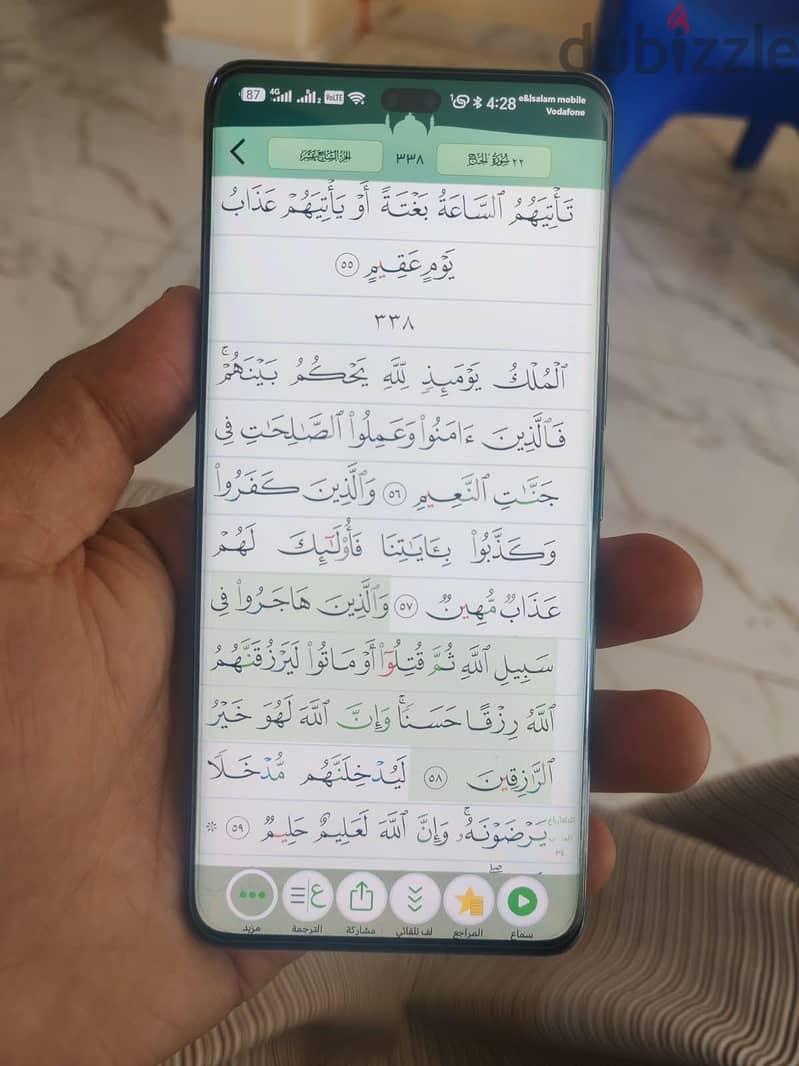 dubizzle
87 4G VoLTE 2 4:28 e&Isalam mobile
Vodafone
الجزء السابع عشر ٣٣٨ ٢٢ سورة الحج
تَأْتِيَهُمُ ٱلسَّاعَةُ بَغْتَةً أَوْ يَأْتِيَهُمْ عَذَابُ
يَوْمٍ عَقِيمٍ ٥٥
٣٣٨
ٱلْمُلْكُ يَوْمَئِذٍ لِّلَّهِ يَحْكُمُ بَيْنَهُمْۚ
فَٱلَّذِينَ ءَامَنُوا۟ وَعَمِلُوا۟ ٱلصَّٰلِحَٰتِ فِى
جَنَّٰتِ ٱلنَّعِيمِ ٥٦ وَٱلَّذِينَ كَفَرُوا۟
وَكَذَّبُوا۟ بِـَٔايَٰتِنَا فَأُو۟لَٰٓئِكَ لَهُمْ
عَذَابٌ مُّهِينٌ ٥٧ وَٱلَّذِينَ هَاجَرُوا۟ فِى
سَبِيلِ ٱللَّهِ ثُمَّ قُتِلُوٓا۟ أَوْ مَاتُوا۟ لَيَرْزُقَنَّهُمُ
ٱللَّهُ رِزْقًا حَسَنًاۚ وَإِنَّ ٱللَّهَ لَهُوَ خَيْرُ
ٱلرَّٰزِقِينَ ٥٨ لَيُدْخِلَنَّهُم مُّدْخَلًا
يَرْضَوْنَهُۥۚ وَإِنَّ ٱللَّهَ لَعَلِيمٌ حَلِيمٌ ٥٩
سماع المراجع لف تلقائي مشاركة الترجمة مزيد